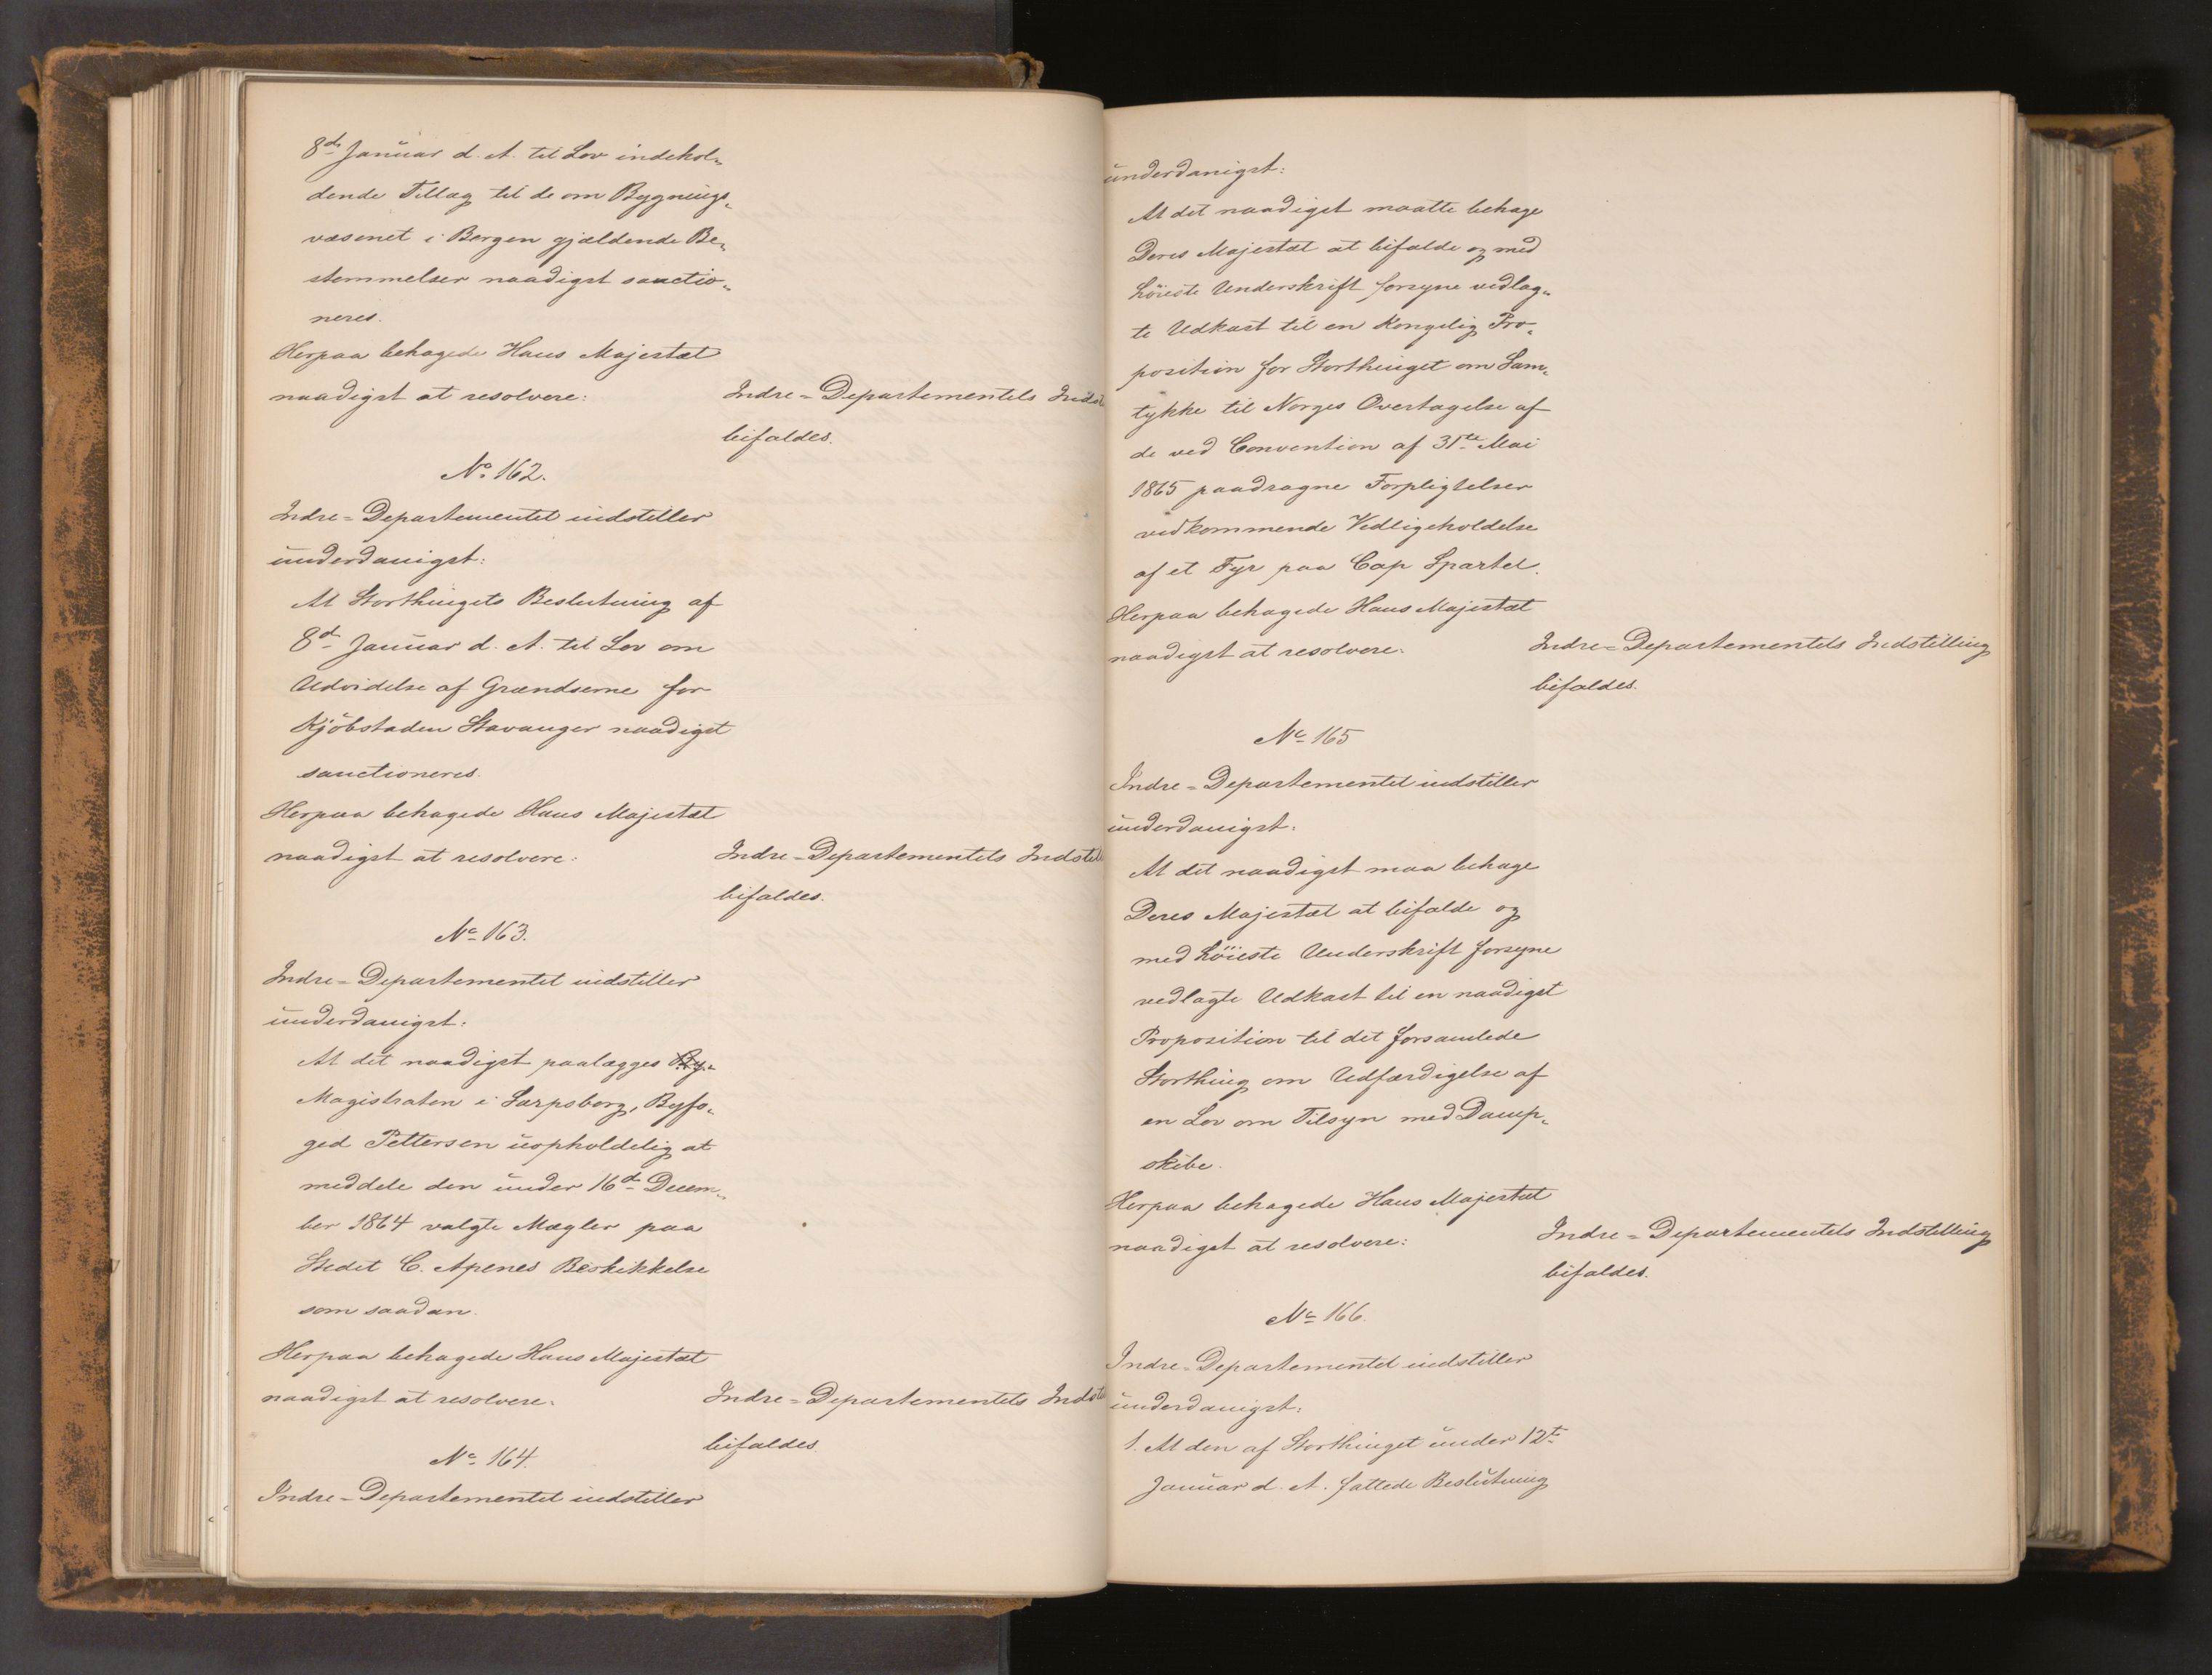 8de Januar d. A. til Lov indehol„
dende Tillæg til de om Bygnings„
væsenet i Bergen gjældende Be„
stemmelser naadigst sanctio„
neres.
Herpaa behagede Hans Majestæt
naadigst at resolvere:
Indre=Departementets Indst
bifaldes.
No. 162.
Indre=Departementet indstiller
underdanigst:
At Storthingets Beslutning af
8de Januar d. A. til Lov om
Udvidelse af Grændserne for
Kjöbstaden Stavanger naadigst
sanctioneres.
Herpaa behagede Hans Majestæt
naadigst at resolvere:
Indre=Departementets Indstil
bifaldes.
No 163.
Indre=Departementet indstiller
underdanigst:
At det naadigst paalægges By=
Magistraten i Sarpsborg, Byfo„
ged Pettersen uopholdelig at
meddele den under 16de Decem„
ber 1864 valgte Mægler paa
Stedet C. Apenes Beskikkelse
som saadan.
Herpaa behagede Hans Majestæt
naadigst at resolvere:
Indre=Departementets Indst
bifaldes.
No 164.
Indre=Departementet indstiller
underdanigst:
At det naadigst maatte behage
Deres Majestæt at bifalde og med
höieste Underskrift forsyne vedlag„
te Udkast til en Kongelig Pro„
position for Storthinget om Sam„
tykke til Norges Overtagelse af
de ved Convention af 31te Mai
1865 paadragne Forpligtelser
vedkommende Vedligeholdelse
af et Fyr paa Cap Spartel.
Herpaa behagede Hans Majestæt
naadigst at resolvere:
Indre=Departementets Indstilling
bifaldes.
No 165
Indre=Departementet indstiller
underdanigst:
At det naadigst maa behage
Deres Majestæt at bifalde og
med höieste Underskrift forsyne
vedlagte Udkast til en naadigst
Proposition til det forsamlede
Storthing om Udfærdigelse af
en Lov om Tilsyn med Damp„
skibe.
Herpaa behagede Hans Majestæt
naadigst at resolvere:
Indre=Departementets Indstilling
bifaldes.
No 166.
Indre=Departementet indstiller
underdanigst:
1. At den af Storthinget under 12te
Januar d. A. fattede Beslutning